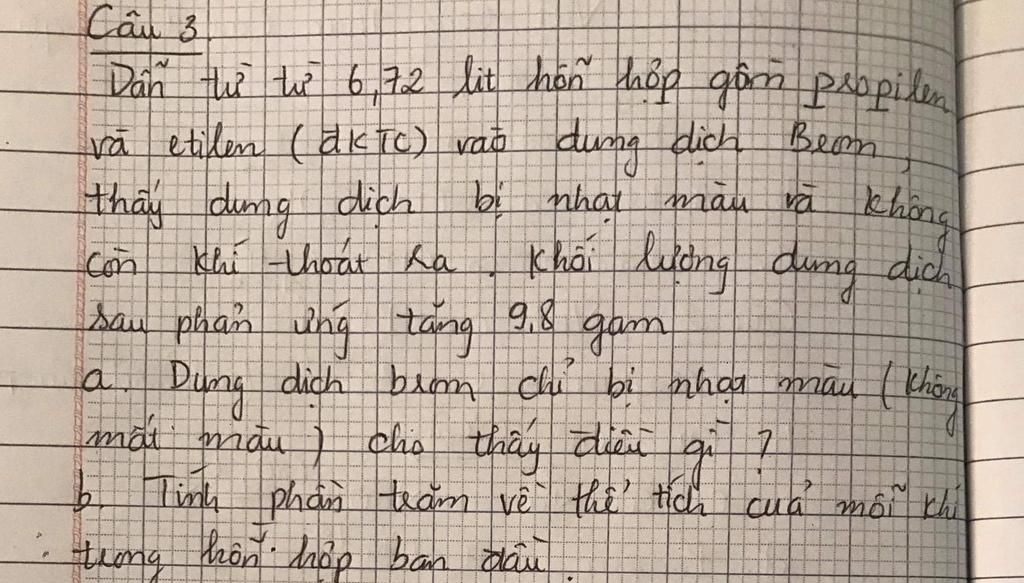 Câu 3.
Dẫn từ từ 6,72 lít hỗn hợp gồm propilen
và etilen (đKTC) vào dung dịch Brom,
thấy dung dịch bị nhạt màu và không
còn khí thoát ra. Khối lượng dung dịch
sau phản ứng tăng 9,8 gam
a. Dung dịch brom chỉ bị nhạt màu (không
mất màu) cho thấy điều gì ?
b. Tính phần trăm về thể tích của mỗi khí
trong hỗn hợp ban đầu.